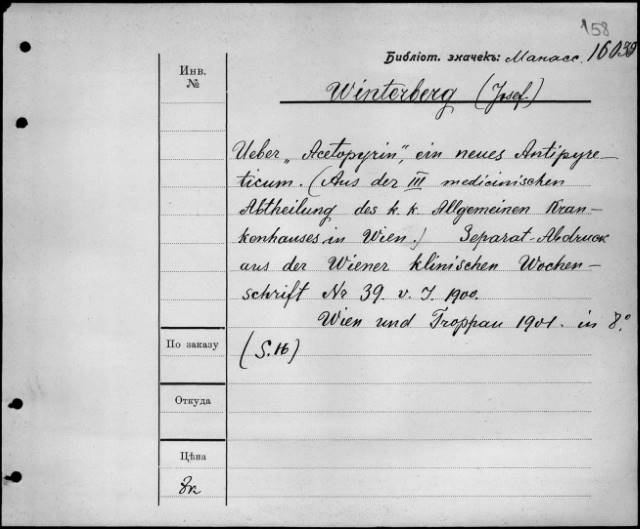 158
Библіот. значекъ: Манасс. 16039
Инв.
№
Winterberg (Josef.)
Ueber „Acetopyrin", ein neues Antipyre-
ticum. (Aus der III medicinischen
Abtheilung des k. k. Allgemeinen Kran-
kenhauses in Wien.) Separat-Abdruck
aus der Wiener klinischen Wochen-
schrift Nr 39. v. J. 1900.
Wien und Troppau 1901. in 8.°
По заказу
(S. 16)
Откуда
Цѣна